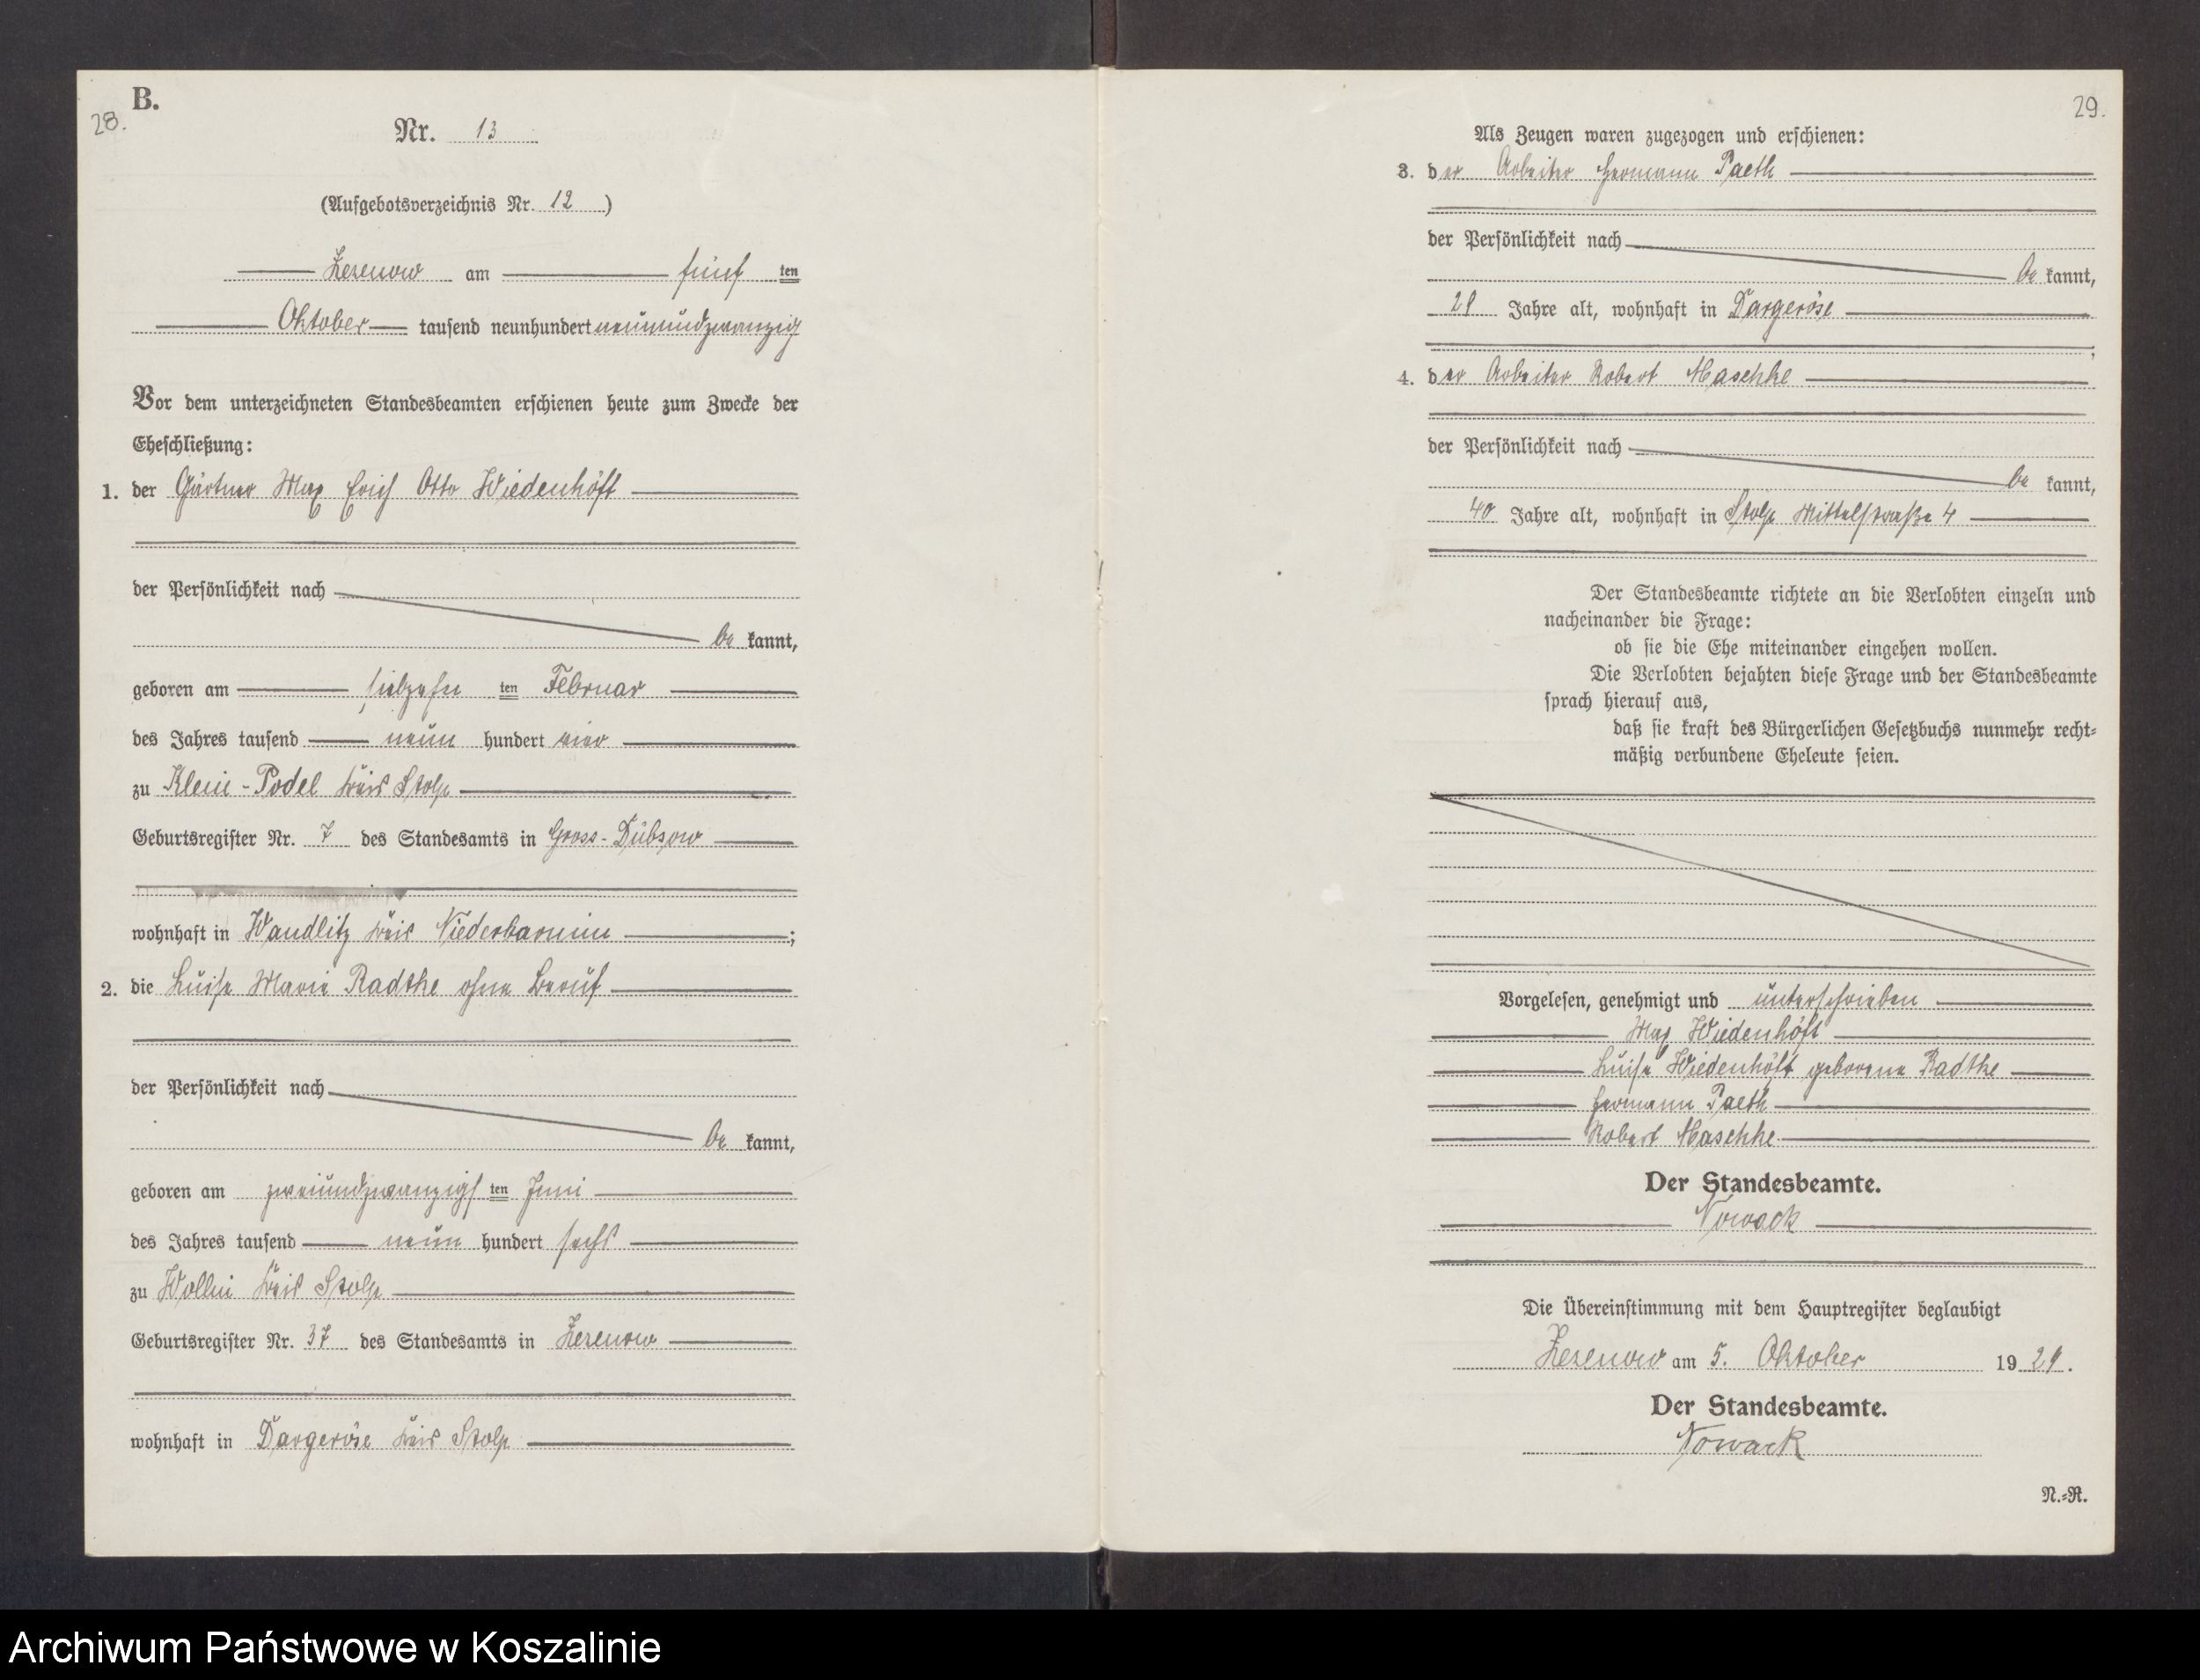 B.
28.
Nr. 13
(Aufgebotsverzeichnis Nr. 12)
Zezenow am fünften
Oktober tausend neunhundert neunundzwanzig
Vor dem unterzeichneten Standesbeamten erschienen heute zum Zwecke der
Eheschließung:
1. der Gärtner Max Erich Otto Wiedenhöft
der Persönlichkeit nach
be kannt,
geboren am siebzehn ten Februar
des Jahres tausend neun hundert vier
zu Klein-Podel Kreis Stolp
Geburtsregister Nr. 7 des Standesamts in Gross-Dübsow
wohnhaft in Wandlitz Kreis Niederbarnim ;
2. die Luise Marie Radtke ohne Beruf
der Persönlichkeit nach
be kannt,
geboren am zweiundzwanzigsten Juni
des Jahres tausend neun hundert sechs
zu Wollin Kreis Stolp
Geburtsregister Nr. 37 des Standesamts in Zezenow
wohnhaft in Dargeröse Kreis Stolp
29.
Als Zeugen waren zugezogen und erschienen:
3. der Arbeiter Hermann Paeth
der Persönlichkeit nach
be kannt,
29 Jahre alt, wohnhaft in Dargeröse
;
4. der Arbeiter Robert Maschke
der Persönlichkeit nach
be kannt,
40 Jahre alt, wohnhaft in Stolp Mittelstraße 4
Der Standesbeamte richtete an die Verlobten einzeln und
nacheinander die Frage:
ob sie die Ehe miteinander eingehen wollen.
Die Verlobten bejahten diese Frage und der Standesbeamte
sprach hierauf aus,
daß sie kraft des Bürgerlichen Gesetzbuchs nunmehr recht-
mäßig verbundene Eheleute seien.
Vorgelesen, genehmigt und unterschrieben
Max Wiedenhöft
Luise Wiedenhöft geborene Radtke
Hermann Paeth
Robert Maschke
Der Standesbeamte.
Nowack
Die Übereinstimmung mit dem Hauptregister beglaubigt
Zezenow am 5. Oktober 1929.
Der Standesbeamte.
Nowack
N.-R.
Archiwum Państwowe w Koszalinie